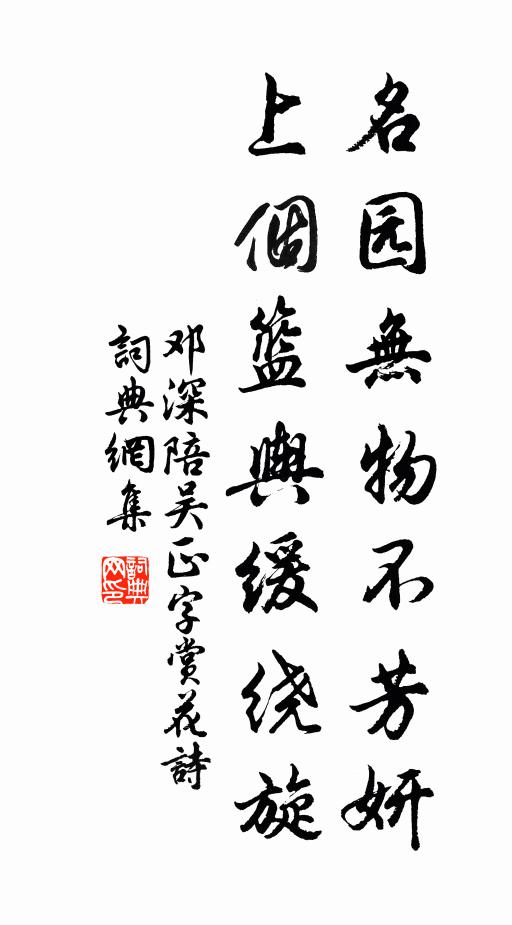 名园無物不芳妍
上個籃輿緩绕旋
邓深陪吴正字赏花詩
詞典網集
詞典网印